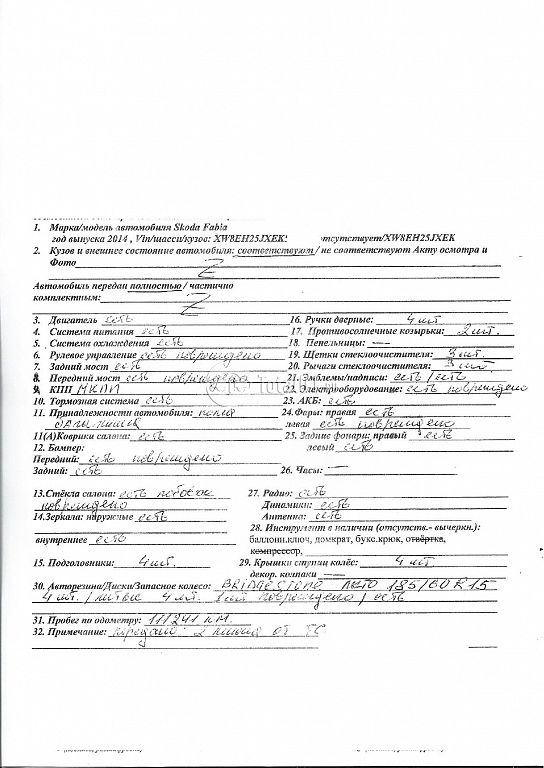 1. Марка/модель автомобиля Skoda Fabia
год выпуска 2014 , Vin/шасси/кузов: XW8EH25JXEK: отсутствует/XW8EH25JXEK
2. Кузов и внешнее состояние автомобиля: соответствуют / не соответствуют Акту осмотра и
Фото
Автомобиль передан полностью / частично
комплектным:
3. Двигатель есть
4. Система питания есть
5. Система охлаждения есть
6. Рулевое управление есть повреждено
7. Задний мост есть
8. Передний мост есть повреждено
9. КПП МКПП
10. Тормозная система есть
11. Принадлежности автомобиля: копия
11(А)Коврики салона: есть
12. Бампер:
Передний: есть повреждено
Задний: есть
13.Стёкла салона: есть лобовое
повреждено
14.Зеркала: наружные есть
внутреннее есть
15. Подголовники: 4 шт.
16. Ручки дверные: 4 шт.
17. Противосолнечные козырьки: 2 шт.
18. Пепельницы: —
19. Щетки стеклоочистителя: 3 шт.
20. Рычаги стеклоочистителя: 3 шт
21. Эмблемы/надписи: есть / есть
22. Электрооборудование: есть повреждено
23. АКБ: есть
24.Фары: правая есть
левая есть повреждено
25. Задние фонари: правый есть
левый есть
26. Часы: —
27. Радио: есть
Динамики: есть
Антенна: есть
28. Инструмент в наличии (отсутств.- вычеркн.):
баллонн.ключ, домкрат, букс.крюк, отвёртка,
компрессор,
29. Крышки ступиц колёс: 4 шт.
декор. колпаки —
30. Авторезина/Диски/Запасное колесо: BRIDGESTONE лето 185/60 R15
4 шт. / литые 4 шт. 1 шт повреждено / есть
31. Пробег по одометру: 111241 км.
32. Примечание: передано: 2 ключа от ТС